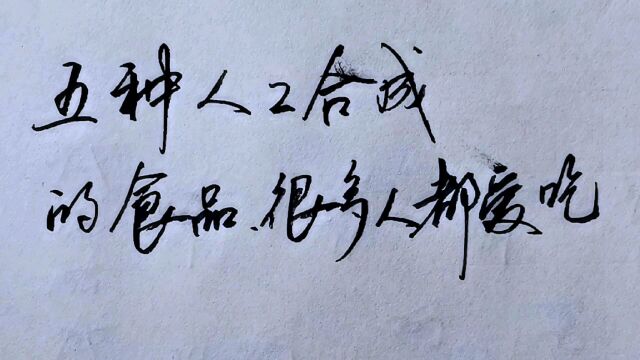 五种人工合成
的食品、很多人都爱吃